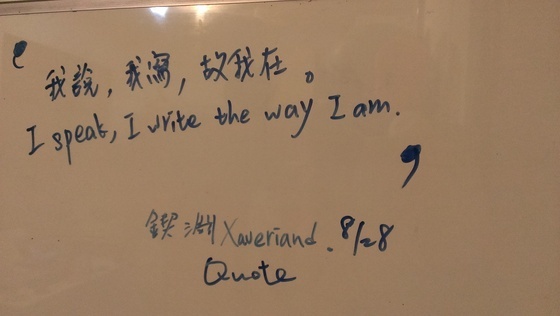 ‘
我說，我寫，故我在。
I speak, I write the way I am.
’
洲 Xaveriand. 8/28
Quote